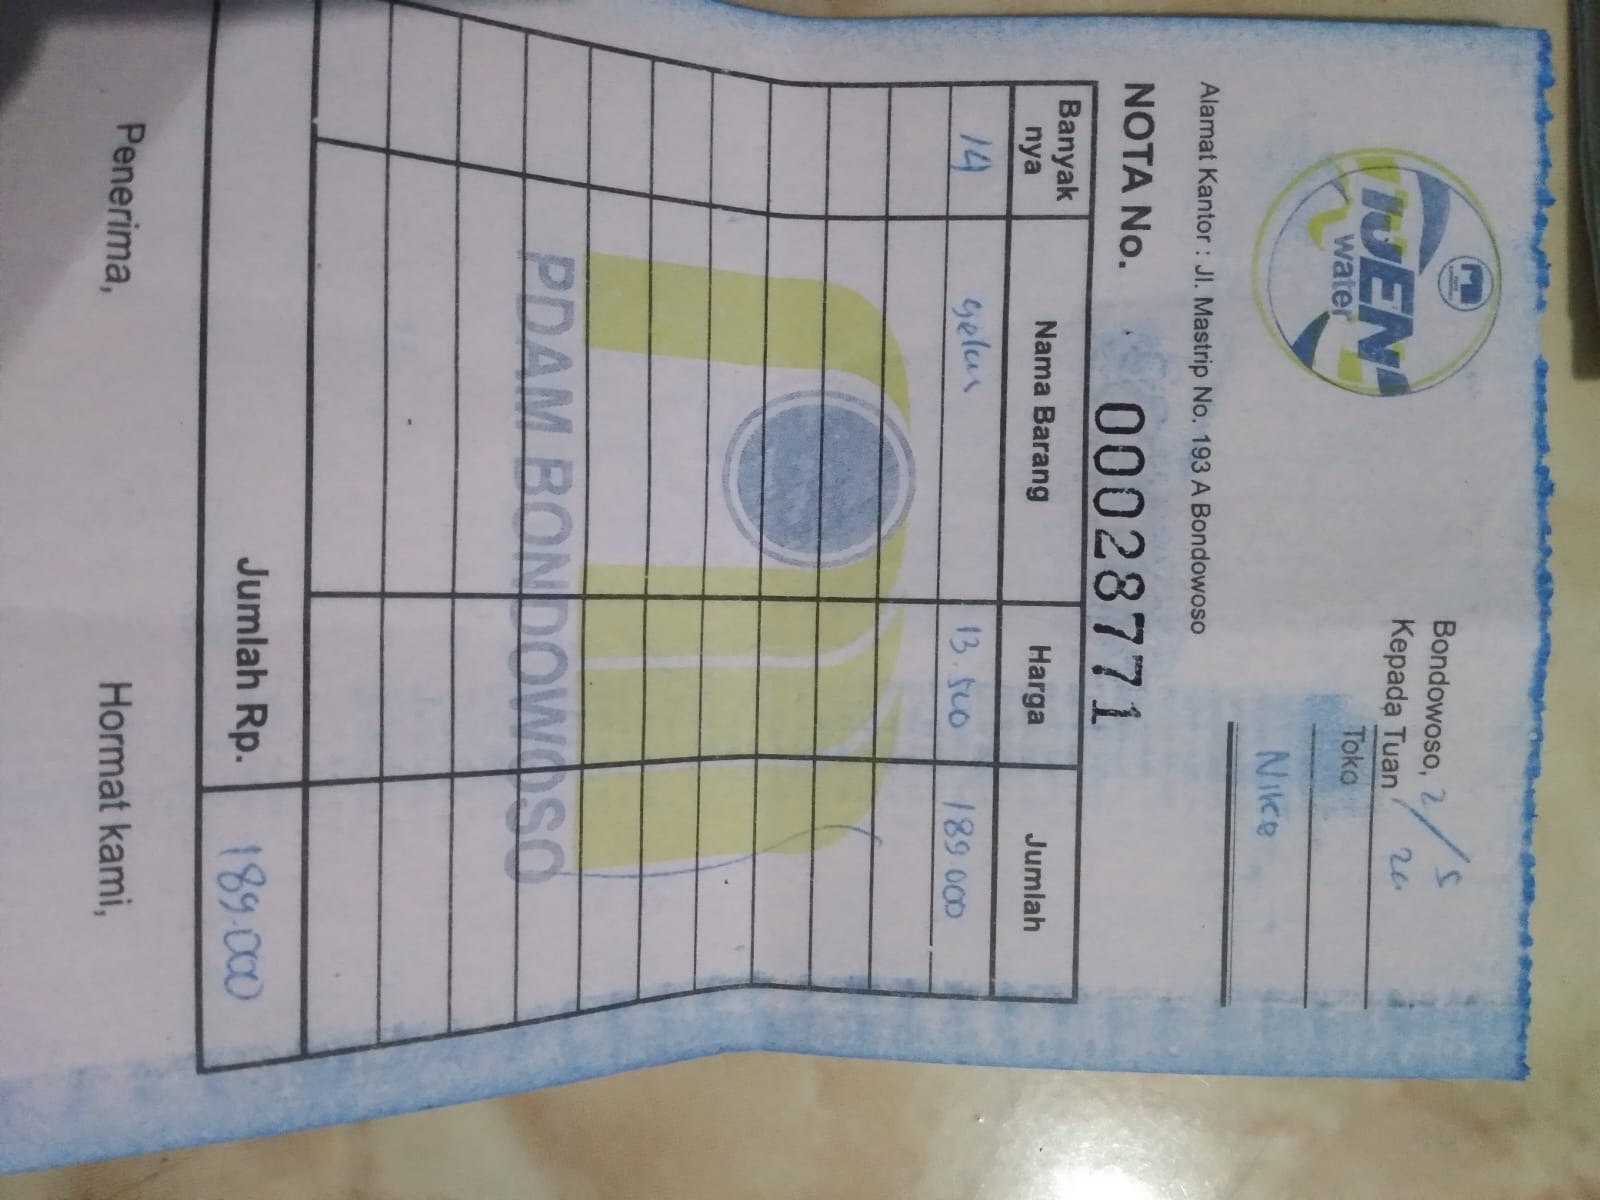 IJEN
water
Bondowoso, 2/5
Kepada Tuan 20
Toko
Nike
Alamat Kantor : Jl. Mastrip No. 193 A Bondowoso
NOTA No. 00028771
Banyak nya Nama Barang Harga Jumlah
14 gelas 13.500 189.000
PDAM BONDOWOSO
Jumlah Rp. 189.000
Penerima, Hormat kami,